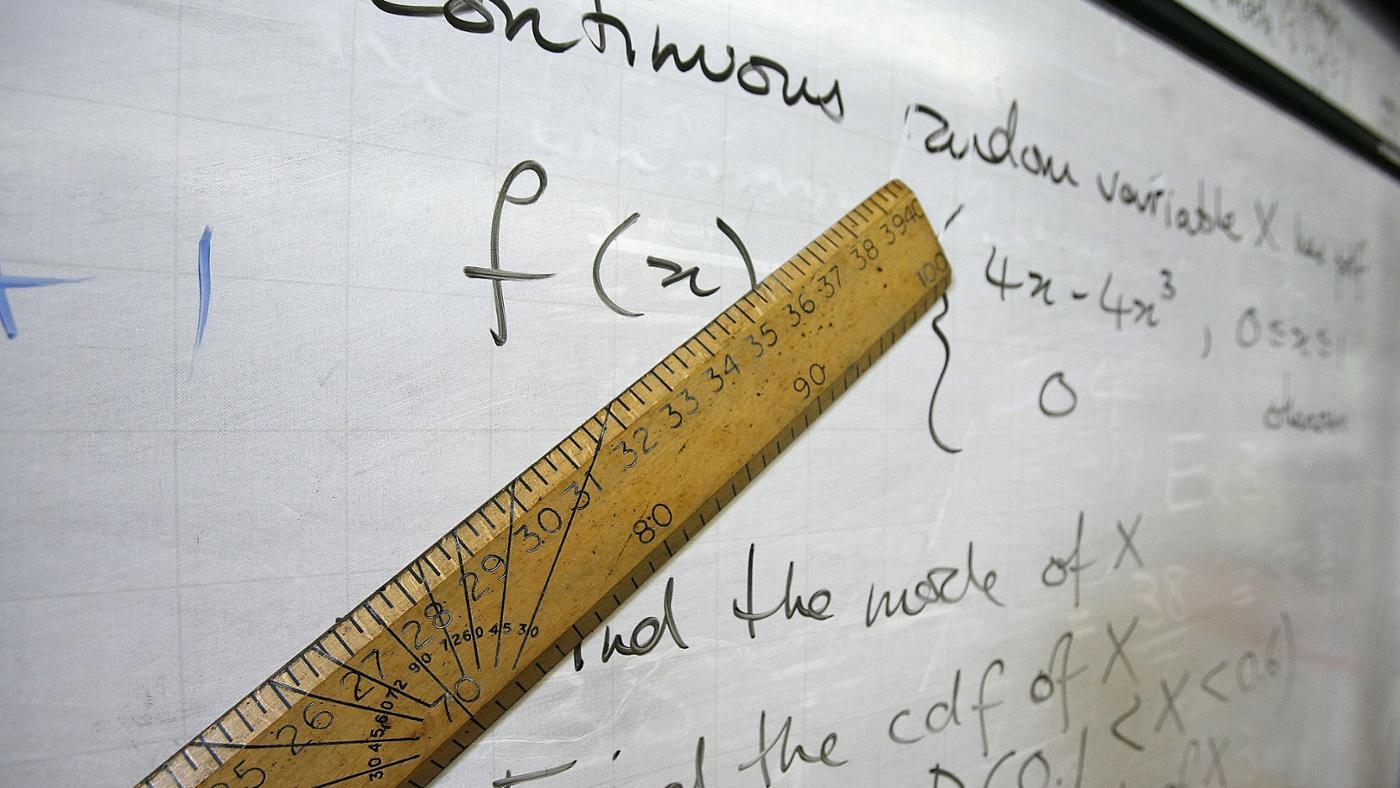 ontinuous random variable X has pdf
f(x) { 4x - 4x³ , 0 ≤ x ≤ 1
0 otherwise
+ 1
ind the mode of X
Find the cdf of X
P(0.1 < X < 0.6)
of X
25 26 27 28 29 30 31 32 33 34 35 36 37 38 39 40
70 80 90 100
90 72 60 45 30
30 45 60 72